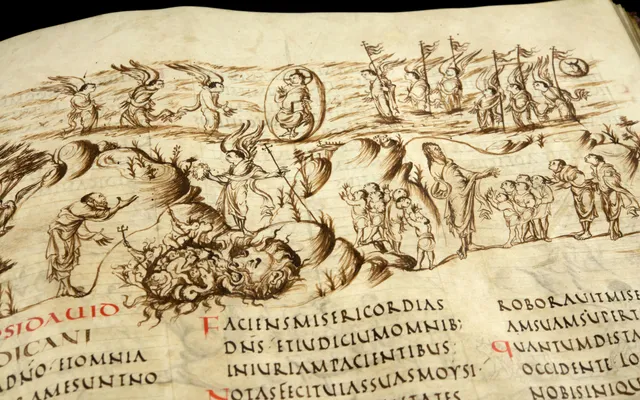 DAUID
DICANI
ADNO ETOMNIA
AMESUNTNO
FACIENSMISERICORDIAS
DNS ETIUDICIUMOMNIB;
INIURIAMPACIENTIBUS·
NOTASFECITUIASSUASMOYSI·
ROBORAUITMISE
AMSUAMSUPERT
QUANTUMDISTA
OCCIDENTE LO
NOBISINIQ